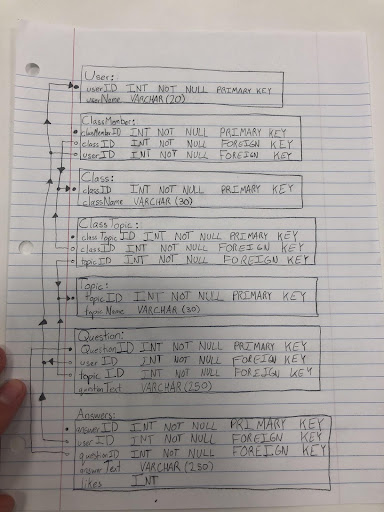 User:
userID INT NOT NULL PRIMARY KEY
userName VARCHAR(20)
ClassMember:
classMemberID INT NOT NULL PRIMARY KEY
classID INT NOT NULL FOREIGN KEY
userID INT NOT NULL FOREIGN KEY
Class:
classID INT NOT NULL PRIMARY KEY
className VARCHAR(30)
ClassTopic:
classTopicID INT NOT NULL PRIMARY KEY
classID INT NOT NULL FOREIGN KEY
topicID INT NOT NULL FOREIGN KEY
Topic:
topicID INT NOT NULL PRIMARY KEY
topicName VARCHAR(30)
Question:
QuestionID INT NOT NULL PRIMARY KEY
userID INT NOT NULL FOREIGN KEY
topicID INT NOT NULL FOREIGN KEY
questionText VARCHAR(250)
Answers:
answerID INT NOT NULL PRIMARY KEY
userID INT NOT NULL FOREIGN KEY
questionID INT NOT NULL FOREIGN KEY
answerText VARCHAR(250)
likes INT